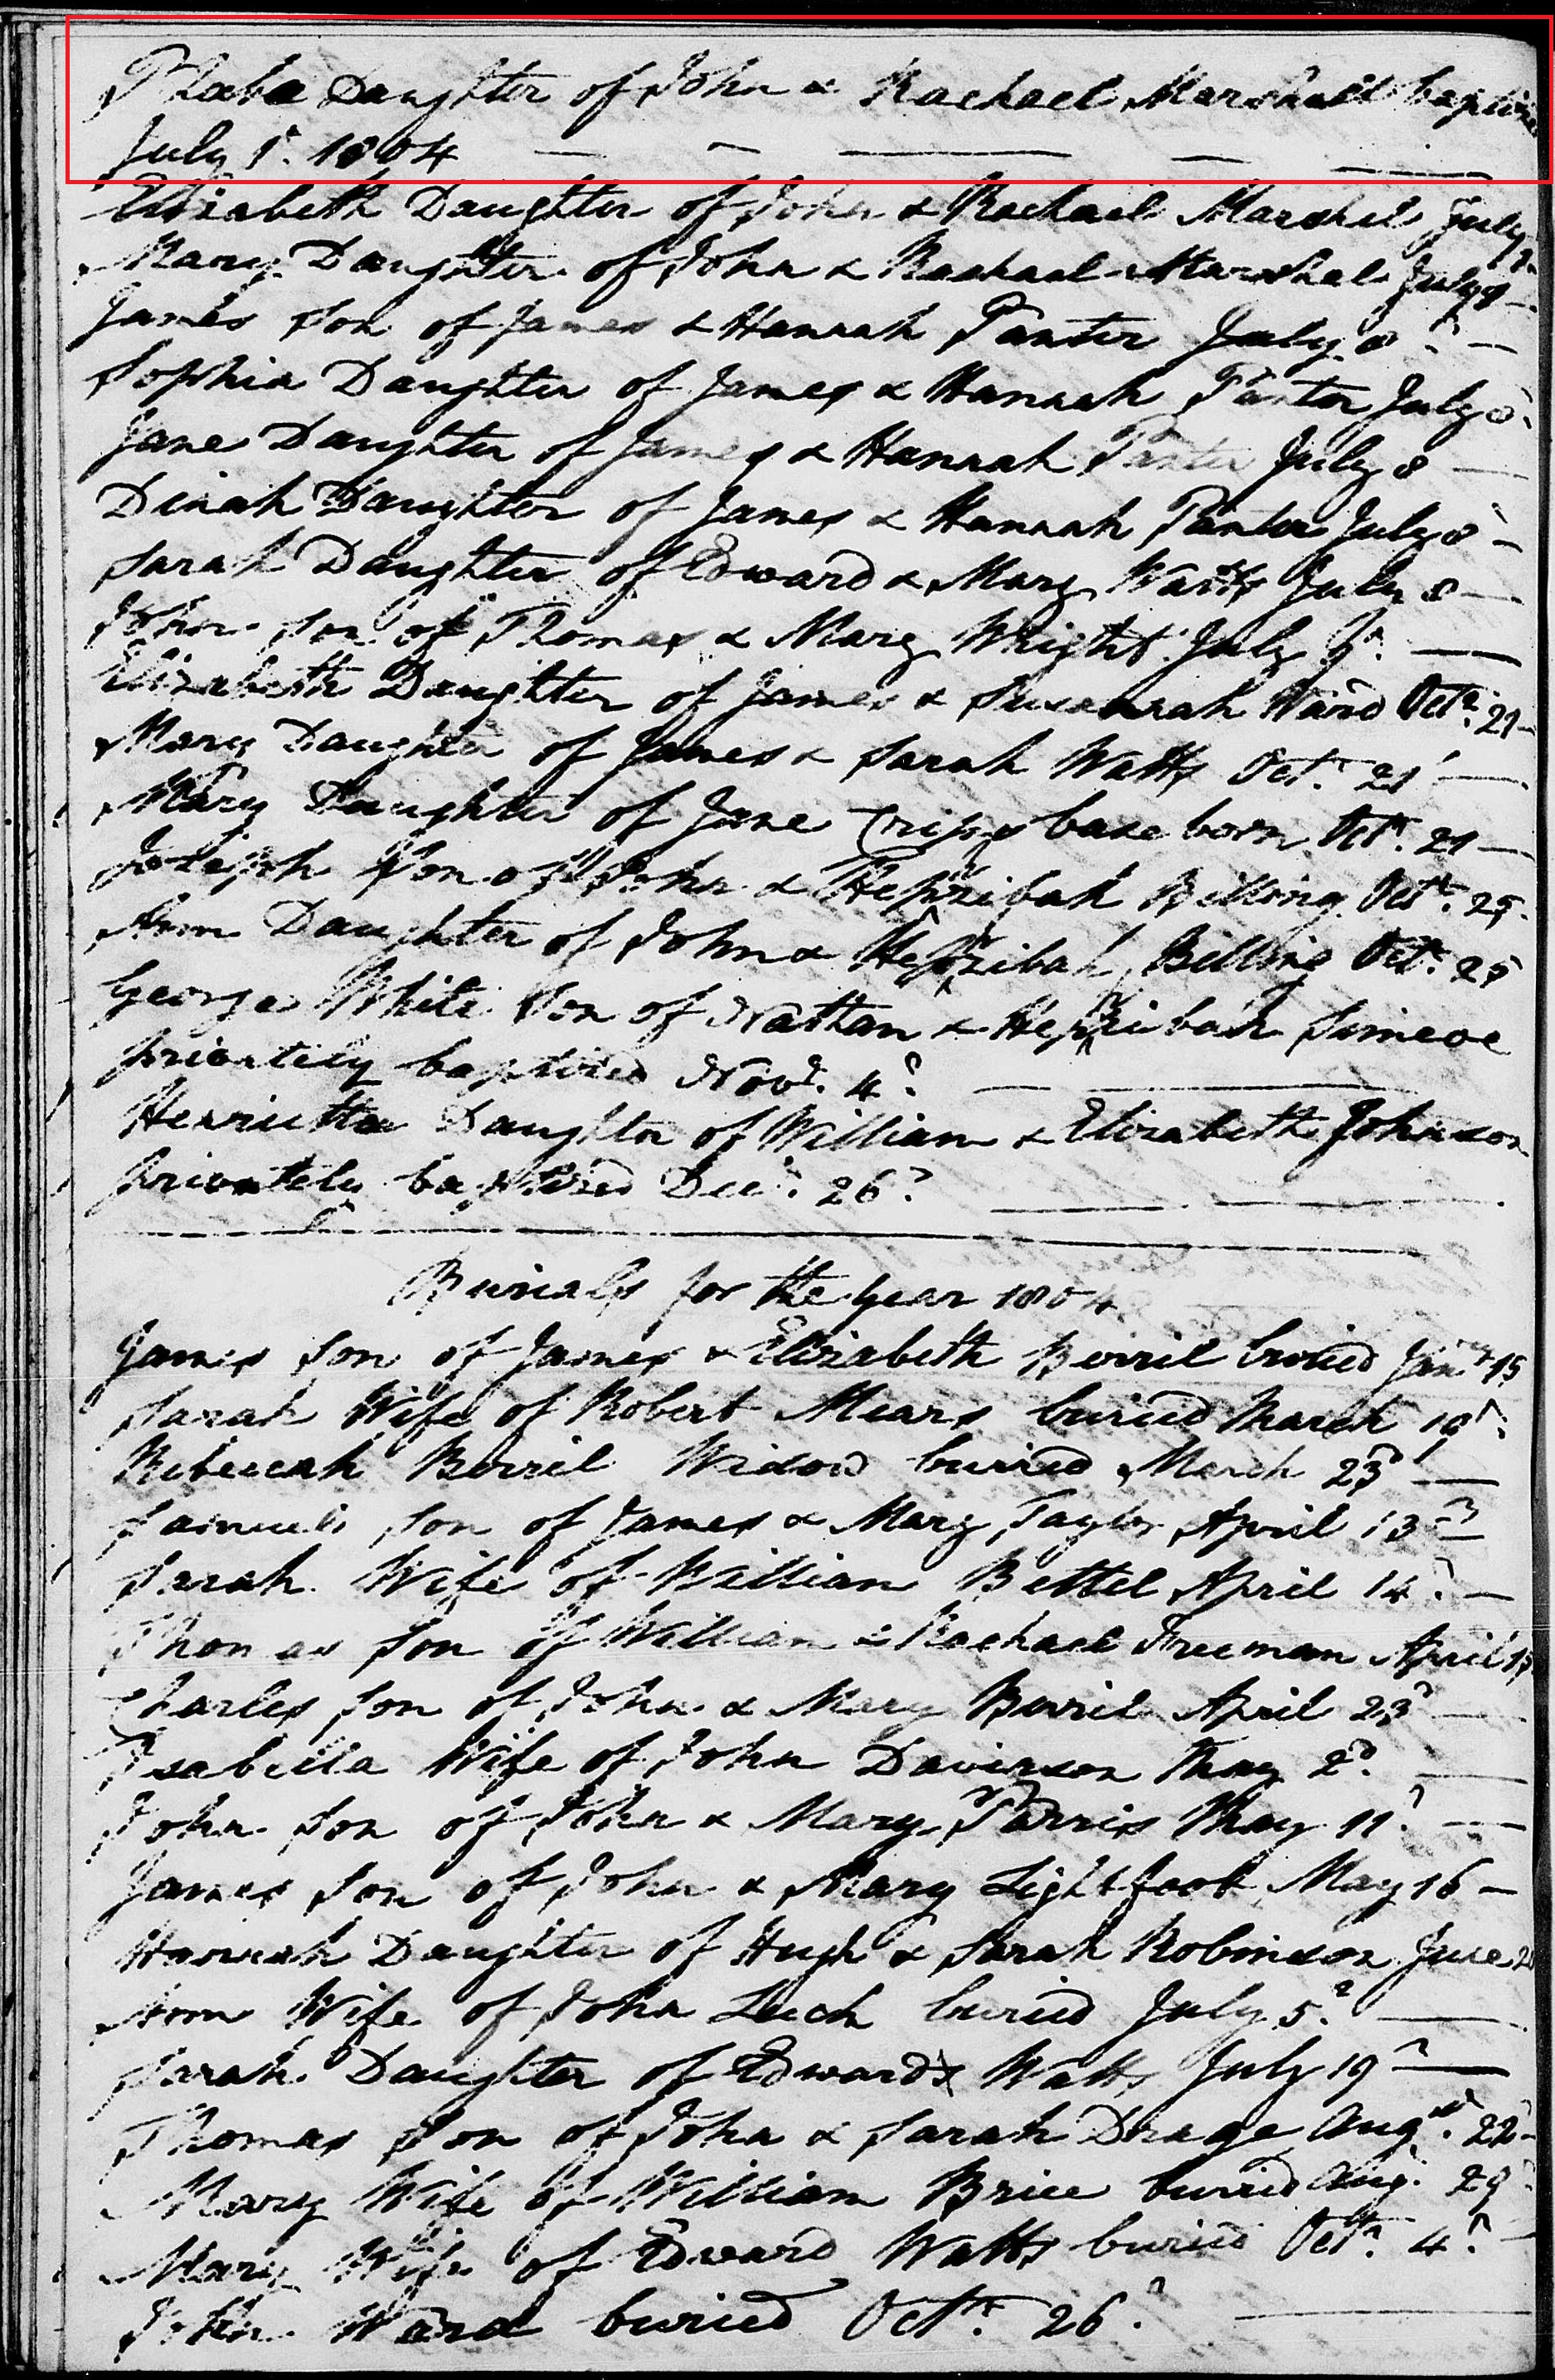 Phoebe Daughter of John & Rachael Marshall baptized
July 1. 1804
Elizabeth Daughter of John & Rachael Marshal July
Mary Daughter of John & Rachael Marshal July 8
James Son of James & Hannah Panter July 8
Sophia Daughter of James & Hannah Panter July 8
Jane Daughter of James & Hannah Panter July 8
Dinah Daughter of James & Hannah Panter July 8
Sarah Daughter of Edward & Mary Watts July 8
John Son of Thomas & Mary Wright July
Elizabeth Daughter of James & Susannah Ward Octr. 21
Mary Daughter of James & Sarah Watts Octr. 21
Mary Daughter of Jane Tripp base born Octr. 21
Joseph Son of John & Hepzibah Billing Octr. 25
Ann Daughter of John & Hepzibah Billing Octr. 25
George White Son of Nathan & Hepzibah Simcoe
privately baptized Novr. 4
Henrietta Daughter of William & Elizabeth Johnson
privately baptized Decr. 26
Burials for the year 1804
James Son of James & Elizabeth Berril buried Jany 15
Sarah Wife of Robert Mears buried March 19
Rebeccah Berril Widow buried March 23
Samuel Son of James & Mary Taylor April 13
Sarah Wife of William Bettel April 14
Thomas Son of William & Rachael Freeman April
Charles Son of John & Mary Berril April 23
Isabella Wife of John Davison May 2d.
John Son of John & Mary Parris May 11
James Son of John & Mary Lightfoot May 16
Hannah Daughter of Hugh & Sarah Robinson June
Ann Wife of John Leech buried July 5
Sarah Daughter of Edward Watts July 19
Thomas Son of John & Sarah Drage Augst. 22
Mary Wife of William Brice buried Aug. 29
Mary Wife of Edward Watts buried Octr. 4
John Ward buried Octr. 26